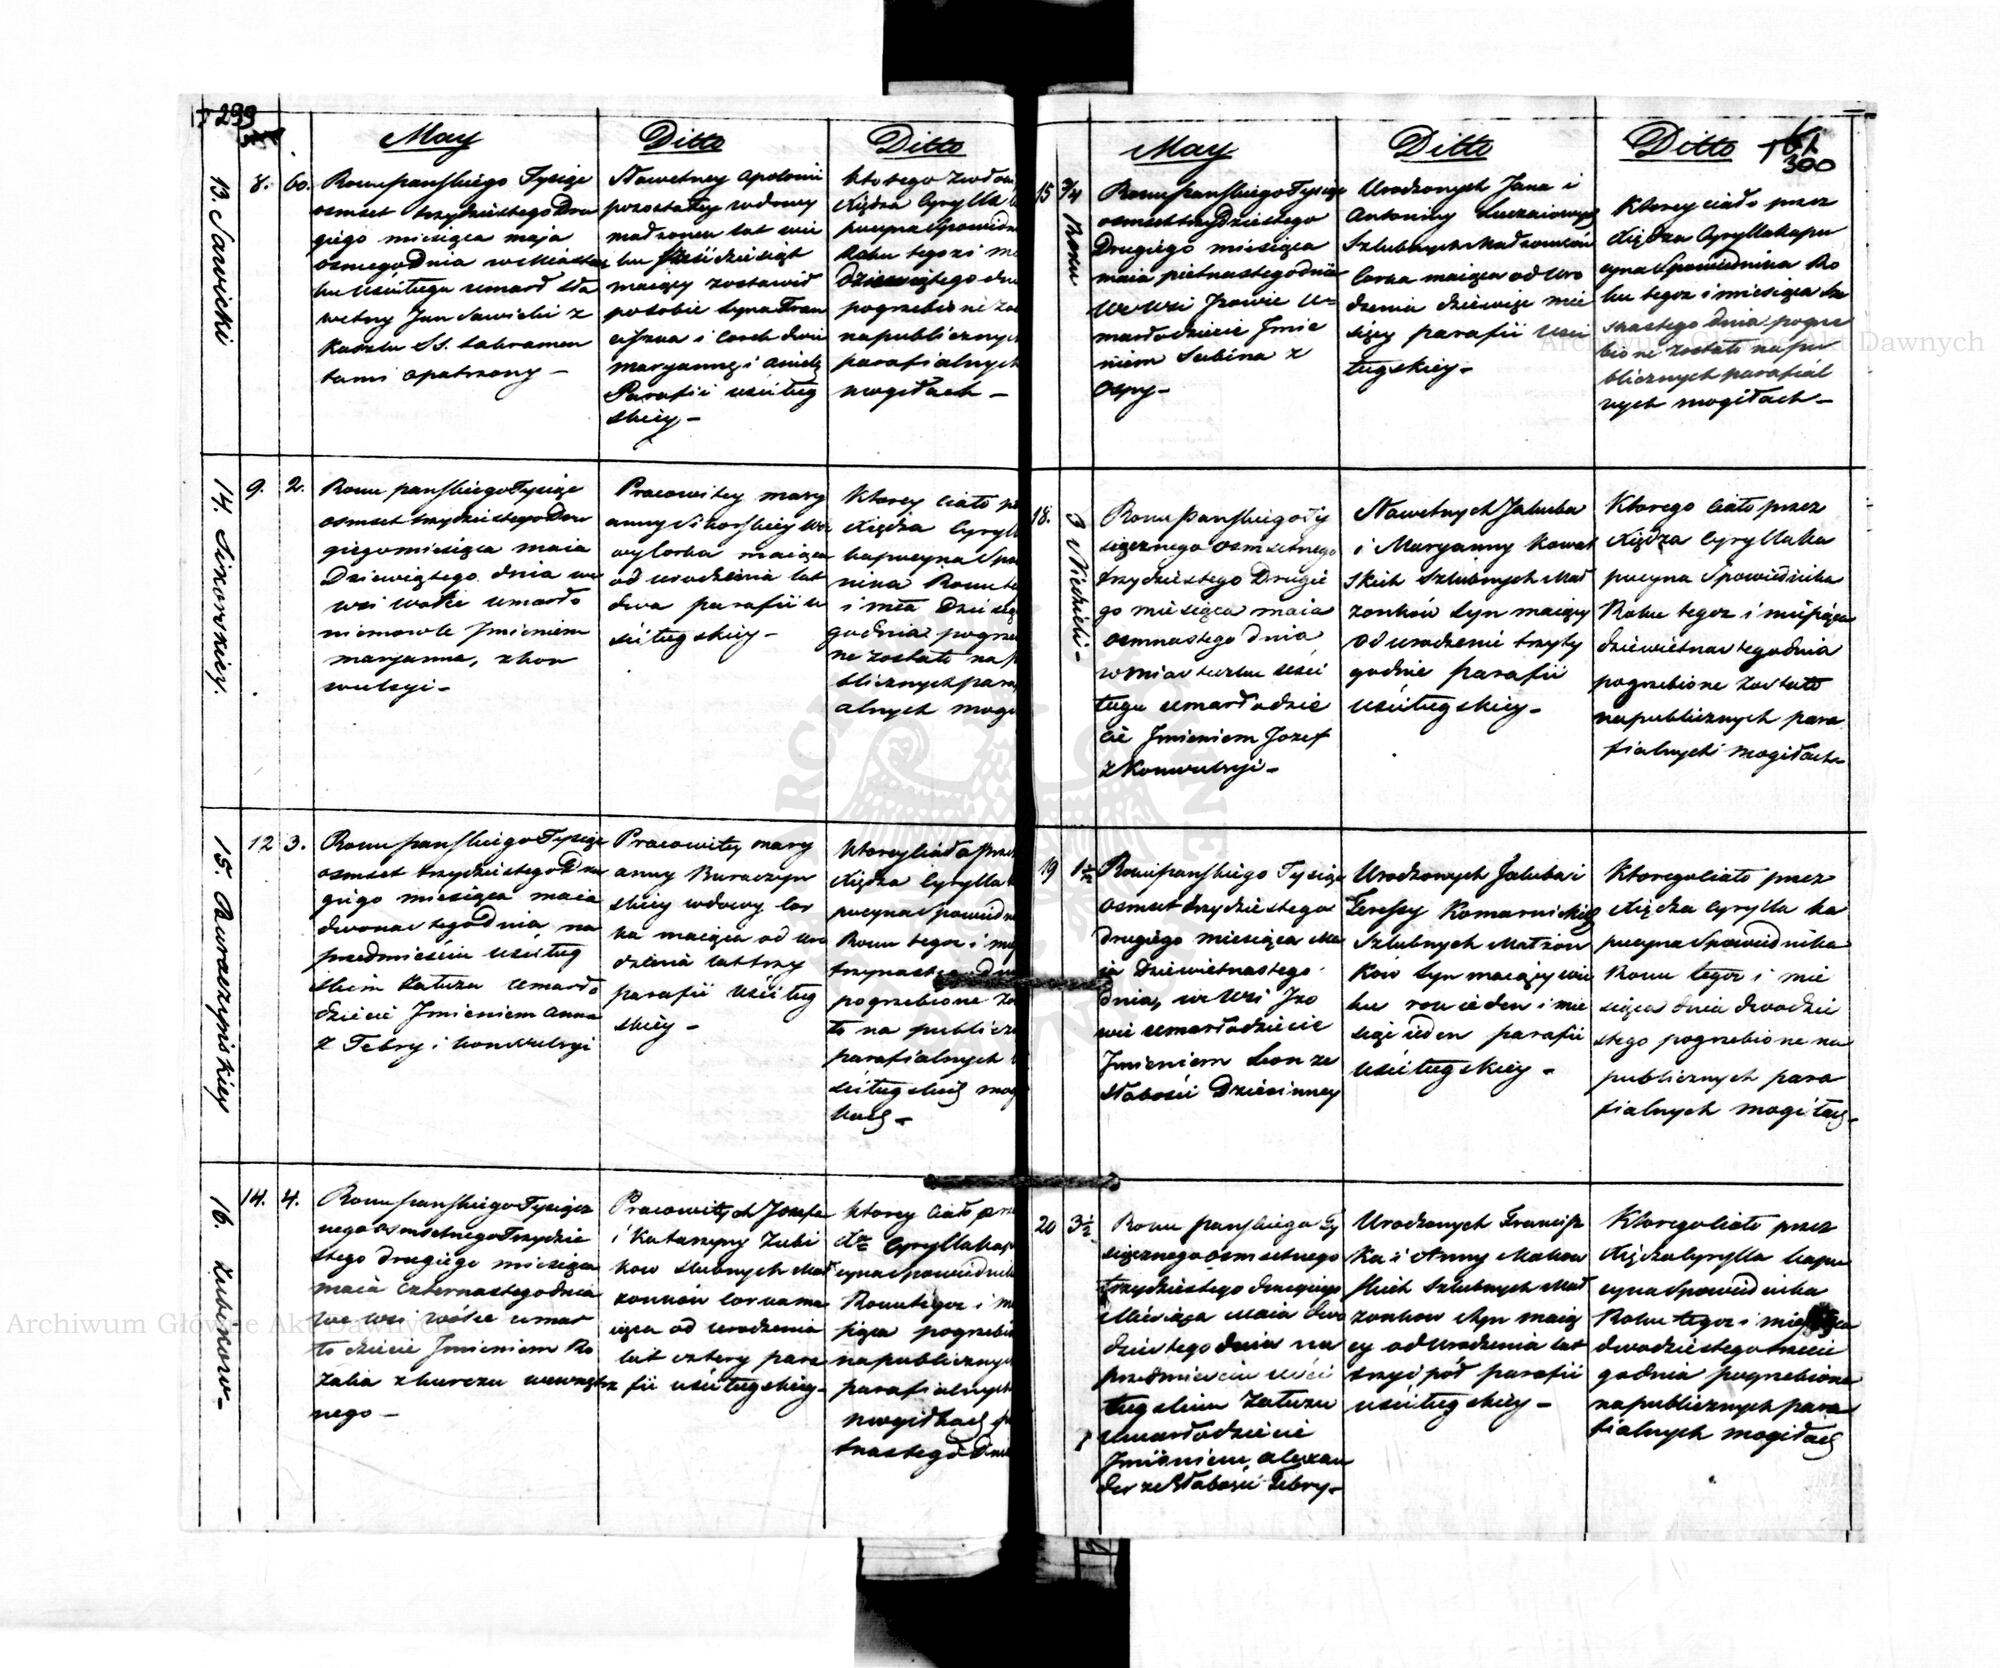 299
May
Ditto
Ditto
13. Sawicki
8.
60.
Roku pańskiego Tysiąc
osmset trzydziestego Dru
giego miesiąca maja
osmego Dnia w Miastecz
ku Uściługu umarł Sła
wetny Jan Sawicki z
Kaszlu SS. Sakramen
tami opatrzony –
Sławetney Apolonii
pozostałey wdowy
małżonek lat wie
ku sześćdziesiąt
maiący zostawił
po sobie syna Fran
ciszka i Corek dwie
maryannę i
Parafii uściług
skiey –
Xiędza Cyrylla
Roku tegoż i
dziewiątego dnia
pogrzebione
na publicznych
parafialnych
mogiłach –
14. Sikorskiey.
9.
2.
Roku pańskiego Tysiąc
osmset trzydziestego Dru
giego miesiąca maia
Dziewiątego dnia we
wsi Wolce umarło
niemowle Jmieniem
maryanna, z kon
wulsyi –
Pracowitey mary
anny Sikorskiey wd
owy Corka maiąca
od urodzenia lat
dwa parafii u
ściługskiey –
Ktorey ciało
Xiędza Cyrylla
kapucyna
nika Roku
pogrze
ne zostało na
blicznych para
alnych
15. Buraczyńskiey
12
3.
Roku pańskiego Tysiąc
osmset trzydziestego Dru
giego miesiąca maia
dwonastego Dnia na
przedmieściu uściług
skim Zatuzu umarło
dziecie Jmieniem anna
z Febry i konwulsyi
Pracowitey mary
anny Buraczyń
skiey wdowy Cor
ka maiąca od uro
dzenia lat trzy
parafii uściług
skiey –
Ktorey ciało przez
Xiędza Cyrylla
pucyna Spowiedni
Roku tegoż i
trzynastego
pogrzebione
to na publicz
parafialnych
ściługskich
16. Zubikow –
14.
4.
Roku pańskiego Tysiącz
nego osmsetnego Trzydzie
stego drugiego miesiąca
maia czternastego dnia
we wsi Wólce umar
ło dziecie Jmieniem Ro
zalia z kurczu wewnątrz
nego –
Pracowitych Jozefa
i Katarzyny Zubi
kow slubnych Mał
zonków Corka ma
iąca od urodzenia
lat cztery para
fii uściługskiey –
Ktorey ciało
Xa Cyrylla
cyna Spowiednik
Roku tegoż i
siąca pogrzebi
na publicznych
parafialnych
mogiłkach
tnastego Dnia
300
May
Ditto
Ditto
15
3/4 Roku
Roku pańskiego Tysiąc
osmset trzydziestego
Drugiego miesiąca
maia pietnastego dnia
we wsi Jzowie u=
marło dziecie Jmie
niem Sabina z
Ospy –
Urodzonych Jana i
Antoniny
Szlubnych Małzonków
Corka maiąca od uro
dzenia dziewięc mie
sięcy parafii uści
ługskiey –
Ktorey ciało przez
Xiędza Cyrylla kapu
cyna Spowiednika Ro
ku tegoz i miesiąca Sze
snastego dnia pogrze
bione zostało na pu
blicznych parafial
nych mogiłach –
18.
3 Niedzieli –
Roku Pańskiego Ty
siącznego osmsetnego
trzydziestego Drugie
go miesiąca maia
osmnastego dnia
w miasteczku uści
ługu umarło dzie
cie Jmieniem Jozef
z Konwulsyi –
Sławetnych Jakuba
i Maryanny Kowal
skich Szlubnych Mał
zonków Syn maiący
od urodzenia trzy ty
godnie parafii
uściługskiey –
Ktorego ciało przez
Xiędza Cyrylla ka
pucyna Spowiednika
Roku tegoz i miesiąca
dziewietnastego dnia
pogrzebione zostało
na publicznych para
fialnych mogiłach –
19
1 1/12
Roku pańskiego Tysiąc
osmset trzydziestego
drugiego miesiąca ma
ja Dziewietnastego
dnia, we wsi Jzo
wie umarło dziecie
Jmieniem Leon ze
słabości Dziecinney
Urodzonych Jakuba i
Teressy Komarnickich
Szlubnych Małzon
ków Syn maiący wie
ku rok ieden i mie
siąc ieden parafii
uściługskiey –
Ktorego ciało przez
Xiędza Cyrylla ka
pucyna Spowiednika
Roku tegoz i mie
siąca dnia dwodzie
stego pogrzebione na
publicznych para
fialnych mogiłach –
20
3 1/2
Roku pańskiego Ty
siącznego osmsetnego
trzydziestego drugiego
Miesiąca Maia dwo
dziestego dnia na
przedmieściu uści
ługskim Zatuzu
umarło dziecie
Jmieniem alexan
der ze słabości Febry –
Urodzonych Francisz
ka i Anny Makow
skich Szlubnych Mał
zonkow Syn maią
cy od urodzenia lat
trzy i pół parafii
uściługskiey –
Ktorego ciało przez
Xiędza Cyrylla kapu
cyna Spowiednika
Roku tegoz i miesiąca
dwodziestego trzecie
go dnia pogrzebione
na publicznych para
fialnych mogiłach
Archiwum Główne Akt Dawnych
Archiwum Główne Akt Dawnych